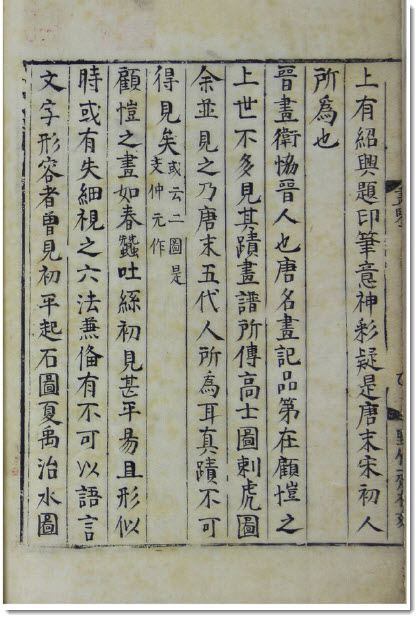 上有紹興題印筆意神彩疑是唐末宋初人
所為也
晉畫衛恊晉人也唐名畫記品第在顧愷之
上世不多見其蹟畫譜所傳高士圖刺虎圖
余並見之乃唐末五代人所為耳真蹟不可
得見矣或云二圖是支仲元作
顧愷之畫如春蠶吐絲初見甚平易且形似
時或有失細視之六法兼偹有不可以語言
文字形容者曾見初平起石圖夏禹治水圖